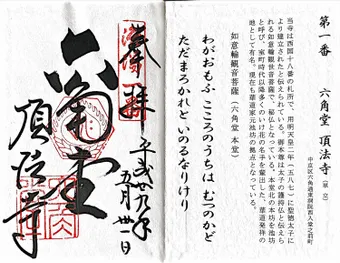 第一番 六角堂 頂法寺
中京区六角通東洞院西入堂之前町
当寺は西国十八番の札所で、用明天皇二年（五八七）に聖徳太子に
より建立されたと伝えられている。御本尊は、太子の護持仏と伝えら
れる如意輪観世音菩薩で、秘仏となっている。本堂北の本坊を池坊
と呼び、室町時代以降多くのいけ花の名手を輩出した、華道発祥の
地として有名。現在も華道家元池坊の拠点となっている。
如意輪観音菩薩（六角堂 本堂）
わがおもふ こころのうちは むつのかど
ただまろかれと いのるなりけり
奉拝
平成廿九年
五月廿一日
六角堂
頂法寺